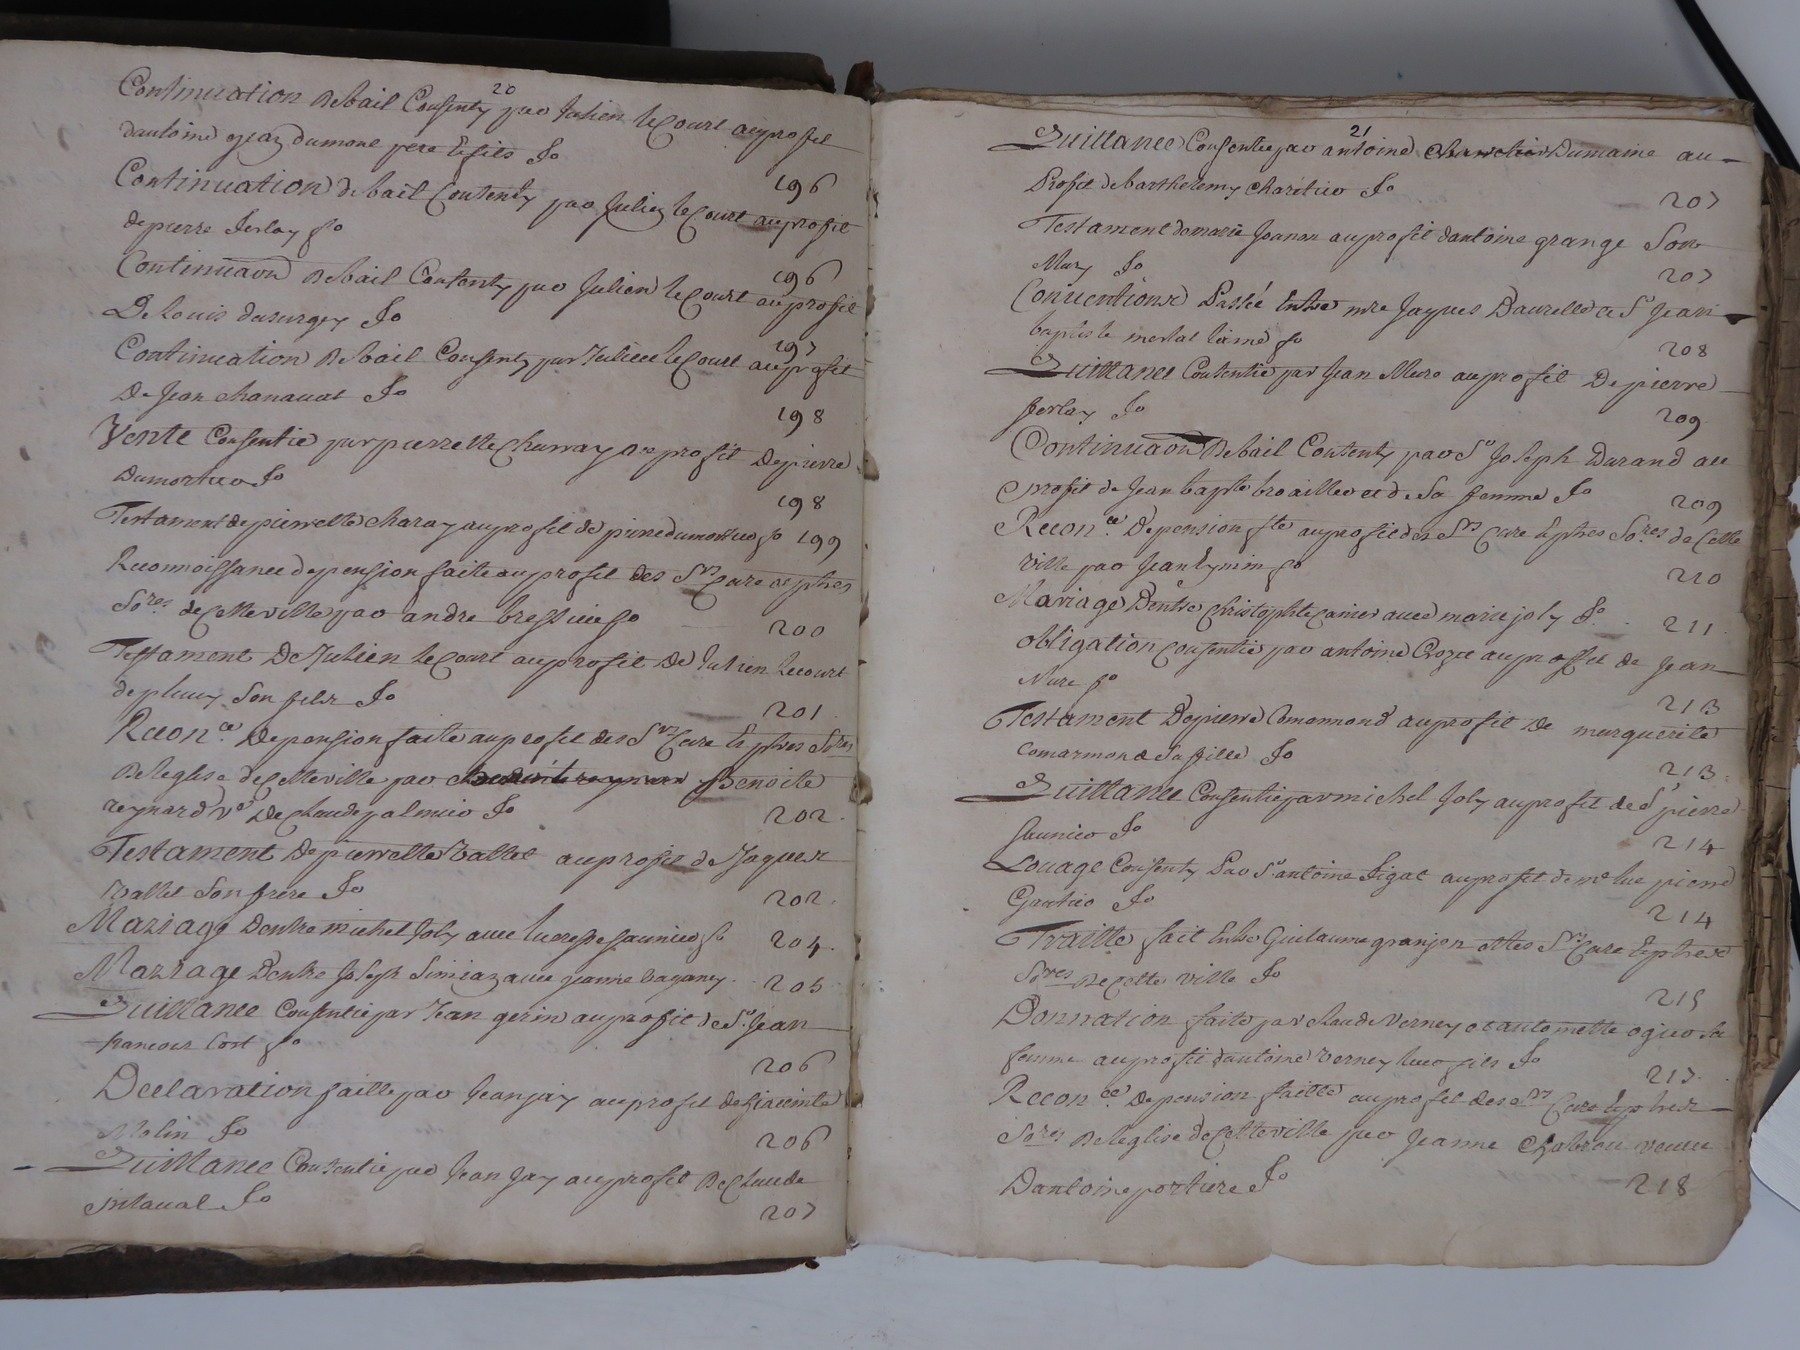 20
Continuation de bail Consenty par Julien le Court au profit
dantoine et jean dumont pere et fils fo
196
Continuation de bail Consenty par Julien le Court au profit
de pierre ferlay fo
196
Continuaon de bail Consenty par Julien le Court au profit
De Louis fo
197
Continuation de bail Consenty par Julien le Court au profit
De Jean chanavat fo
198
Vente Consentie par pierrette Charray au profit De pierre
Dumortier fo
198
Testament de pierrette charay au profit de pierre dumortier fo 199
Reconnoissance de pension faite au profit des Srs Cure et pbres
Sores de Cette ville par andre fo
200
Testament De Julien le Court au profit De Julien Lecourt
Son fils fo
201
Recon.ce De pension faite au profit des Srs Cure Et pbres Sores
De leglise de Cette ville par Benoite
reynard ve De Claude palmier fo
202.
Testament De pierrette Vallet au profit de Jaques
Vallet Son frere fo
202.
Mariage Dentre michel Joly avec Lucresse saunier fo 204.
Mariage Dentre Joseph avec jeanne 205
Quittance Consentie par Jean gerin au profit de Sr. Jean
francois Cort fo
206
Declaration faitte par Jean jay au profit de hiacinte
Molin fo
206
Quittance Consentie par Jean Jay au profit De Claude
fo
207
21
Quittance Consentie par antoine Dumaine au
Profit de barthelemy charetier fo
207
Testament de marie Joanon au profit dantoine grange Son
Mary fo
207
Conventions Passé Entre mre Jaques Daurelle et Sr Jean
baptiste merlat lainé fo
208
Quittance Consentie par Jean Mure au profit De pierre
ferlay fo
209
Continuaon De bail Consenty par Sr Joseph Durand au
profit de Jean bapte broaillier et de Sa femme fo
209
Recon.ce De pension fte au profit des Srs Cure Et pbres Sores de Cette
ville par Jean fo
210
Mariage Dentre Christophle avec marie joly fo. 211
obligation Consentie par antoine Croze au profit de Jean
Mure fo
213
Testament De pierre Comarmond au profit De marguerite
Comarmond Sa fille fo
213.
Quittance Consentie par michel Joly au profit de Sr pierre
saunier fo
214
Louage Consenty Par Sr antoine figat au profit de me luc pierre
Gautier fo
214
Traitte fait Entre Guilaume granjon et les Srs Cure Et pbres
Sores De Cette ville fo
215
Donnation faite par Claude Verney et antoinette ogier Sa
femme au profit dantoine Verney leur fils fo
217.
Recon.ce De pension faitte au profit des Srs Cure Et pbres
Sores De leglise de Cette ville par Jeanne Chabrou veuve
Dantoine portiere fo
218